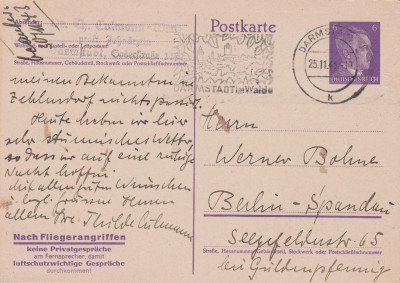 Absender:
Postkarte
6
DEUTSCHES REICH
DARMSTADT
25.11.43
k
DARMSTADT im Walde
Wohnort, auch Zustell- oder Leitpostamt
Straße, Hausnummer, Gebäudeteil, Stockwerk oder Postschließfachnummer
meinen Bekannten in
Zehlendorf nichts passiert.
Heute haben wir hier
sehr stürmisches Wetter,
so dass wir auf eine ruhige
Nacht hoffen.
Mit allen guten Wünschen
u. herzl. Grüssen Ihnen
allen Ihre Thilde Culmann
Nach Fliegerangriffen
keine Privatgespräche
am Fernsprecher, damit
luftschutzwichtige Gespräche
durchkommen!
Herrn
Werner Bohne
Berlin-Spandau
Seegefelderstr. 65
Straße, Hausnummer, Gebäudeteil, Stockwerk oder Postschließfachnummer
bei Güldenpfennig